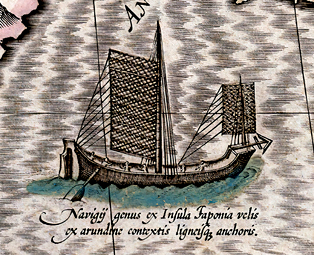 AN
Navigij genus ex Insula Iaponia velis
ex arundine contextis ligneisq, anchoris.